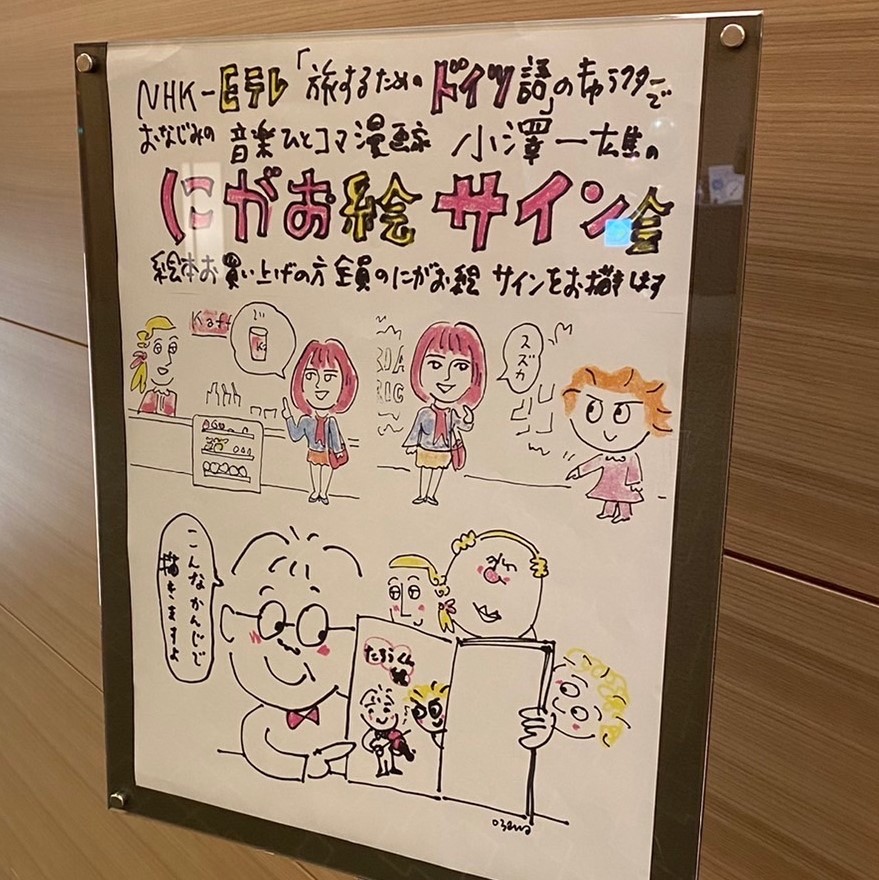 NHK-Eテレ「旅するための ドイツ語」のキャラクターで
おなじみの 音楽ひとコマ漫画家 小澤一雄の
にがお絵 サイン会
絵本お買い上げの方 全員のにがお絵 サインをお描きします
Kaff
スズカ
こんなかんじで
描きますよ
たろうくん
ozawa